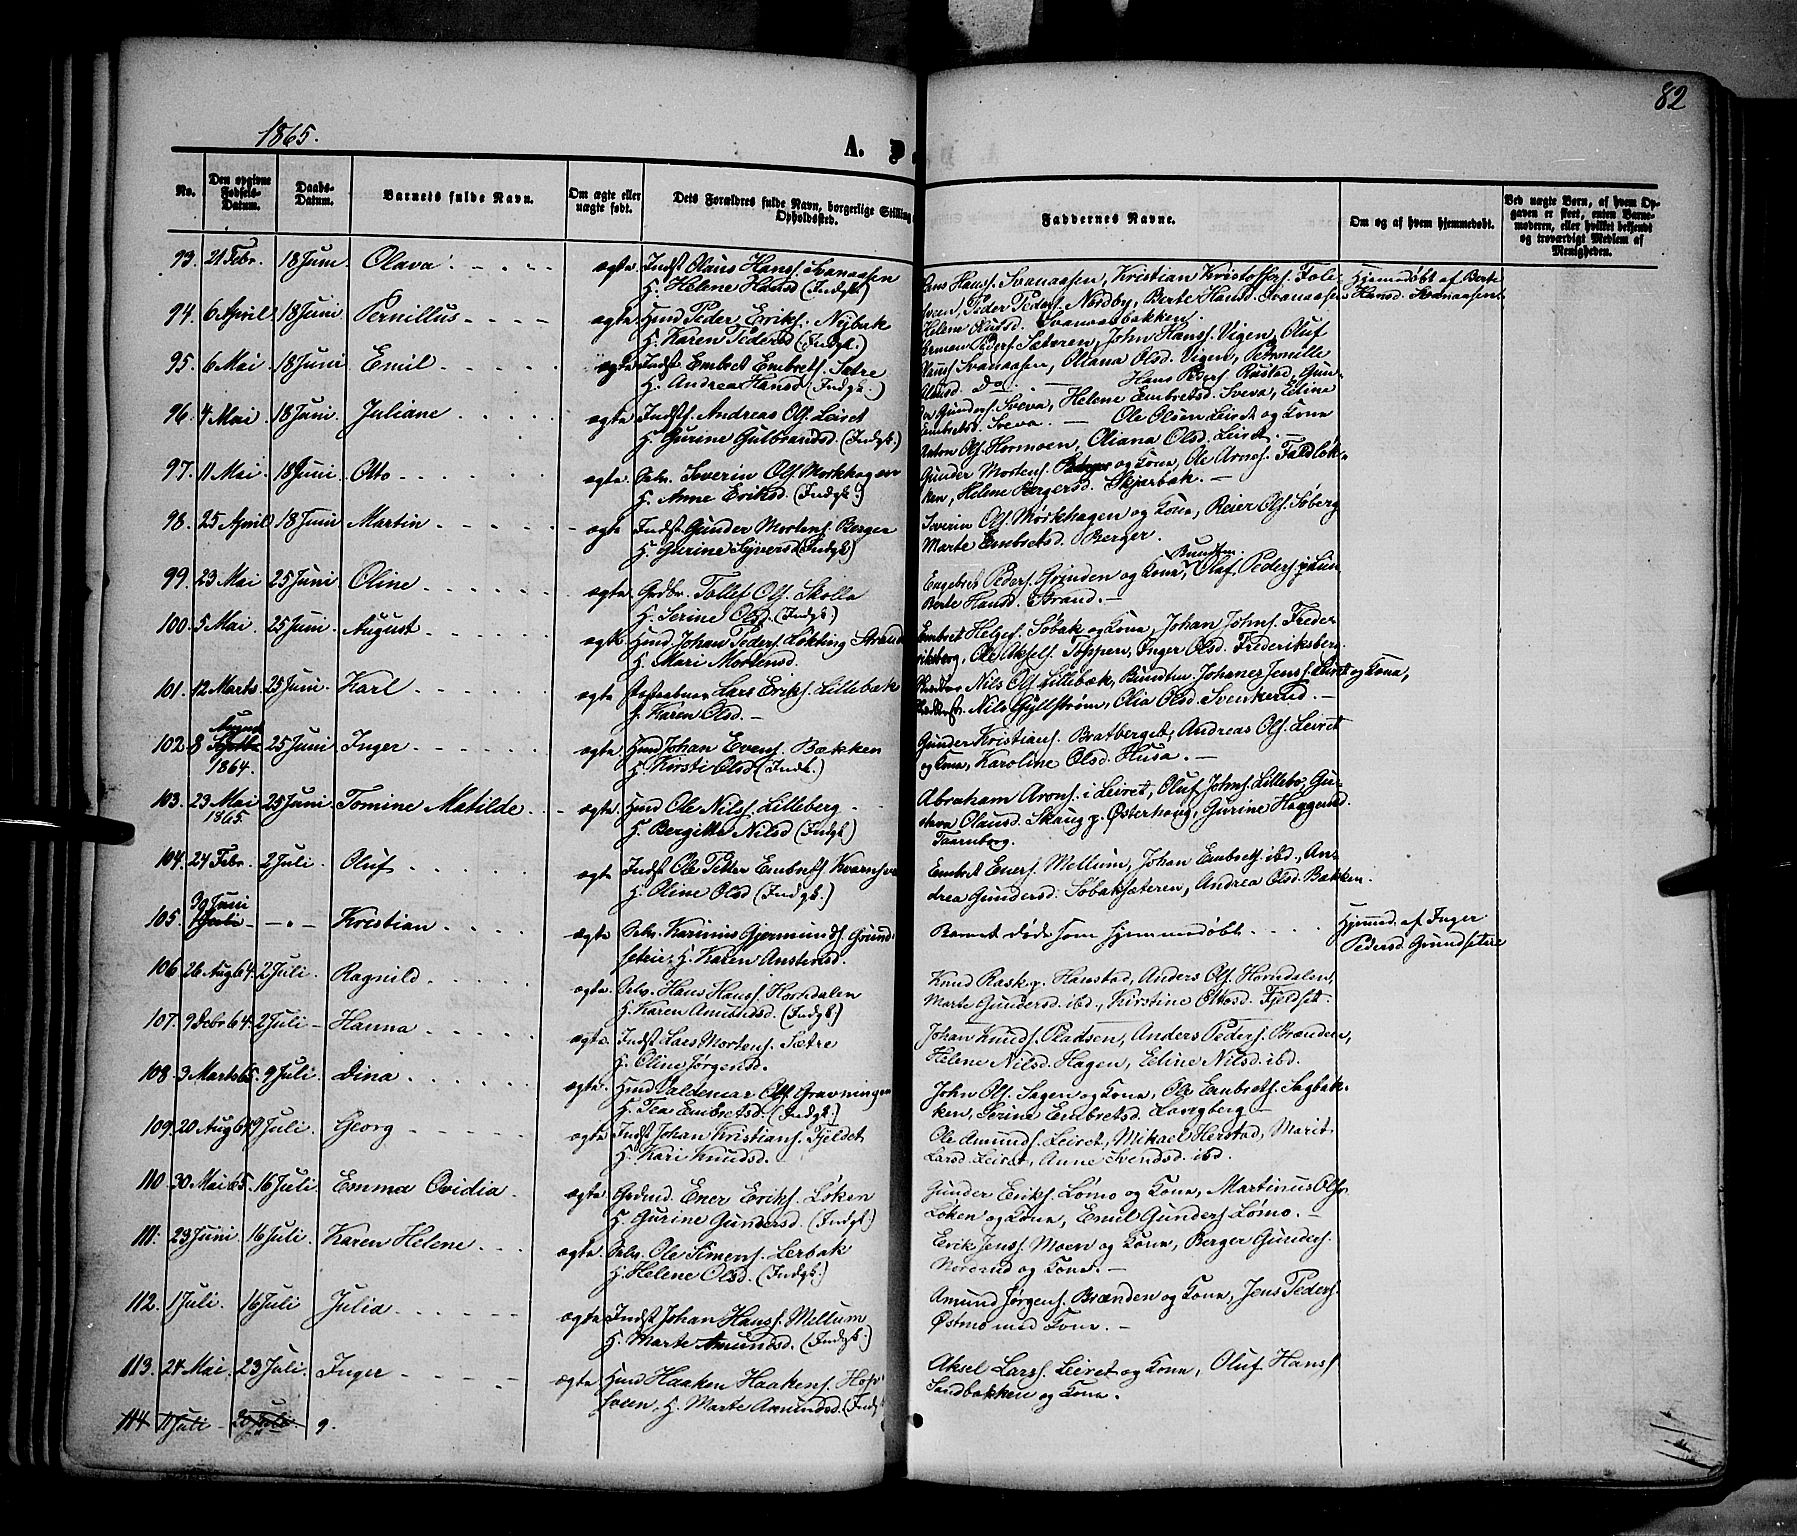 82
1865.
A. D
No.
Den opgivne Fødsels-Datum.
Daabs-Datum.
Barnets fulde Navn.
Om ægte eller uægte født.
Dets Forældres fulde Navn, borgerlige Stilling
Opholdssted.
Faddernes Navne.
Om og af hvem hjemmedøbt.
Ved uægte Børn, af hvem Opgaven er skeet, enten Barnemoderen, eller hvilket bekjendt og troværdigt Medlem af Menigheden.
93. 21 Febr. 18 Juni Olava. ægte Indst Olaus Hanss. Svenaasen
H. Helene Hansd (Indgk)
Hans Hanss. Svenaasen, Kristian Kristoffers. Fole-
sveen, Peder Peders. Nordby, Berte Hansd. Svenaasen
Helene Olausd. Svenaasbakken.
Hjemmedøbt af Berte
Hansd. Svenaasen.
94. 6 April 18 Juni Pernillus ægte Huusd Peder Eriks. Nybak
H. Karen Pedersd (Indgk.)
Herman Peders. Sæteren, John Hanss. Vigen, Oluf
Hanss Svenaasen, Oliana Olsd. Vigen, Petronille
Olausd. Do.
95. 6 Mai 18 Juni Emil ægte Indst Embret Embrets. Sætre
H. Andrea Hansd (Indgk.)
Hans Peders. Rustad, Gun-
der Gunders. Sveva, Helene Embretsd. Sveva, Eline
Embretsd. Sveva.
96. 4 Mai 18 Juni Juliane ægte Indst. Andreas Ols. Leiret
H. Gurine Gulbrandsd. (Indgk.)
Ole Olsen Leiret og Kone
Anton Ols. Hormoen, Oliana Olsd. Leiret.
97. 11 Mai 18 Juni Otto ægte Selv. Severin Ols. Mørkhagen
H. Anne Eriksd. (Indgk.)
Gunder Mortens. Berger og Kone, Ole Arnes. Faldløk-
ken, Helene Bergersd. Skjærbæk.
98. 25 April 18 Juni Martin ægte Indst. Gunder Mortens. Berger
H. Gurine Syversd (Indgk)
Severin Ols. Mørkhagen og Kone, Reier Ols. Søberg
Marte Embretsd. Berger.
99. 23 Mai 25 Juni Oline ægte Grdbr. Tollef Ols. Skolla
H. Serine Olsd. (Indgk.)
Engebret Peders. Grinden og Kone, Olaf Peders. 
Berte Hansd. Strand.
100. 5 Mai 25 Juni August ægte Huusd Johan Peders. Løkting Strand
H. Mari Mortensd.
Embret Helges. Søbak og Kone, Johan Johns. Freder-
iksberg, Ole Aksels. Toppen, Inger Olsd. Frederiksberg.
101. 12 Marts 25 Juni Karl ægte Lars Eriks. Lillebæk
H. Karen Olsd.
Nils Ols. Lillebæk, Bundtm. Johanes Jenss. Leiret og Kone,
Nils Gyllstrøm, Olia Olsd. Svenkerud.
102. 8 August 1864. 25 Juni Inger ægte Huusd Johan Evens. Bækken
H. Kirsti Olsd (Indk.)
Gunder Kristians. Bratberget, Andreas Ols. Leiret
og Kone, Karoline Olsd. Husa.
103. 23 Mai 1865 25 Juni Tomine Matilde ægte Huusd Ole Nils. Lilleberg
H. Bergitte Nilsd (Indgk)
Abraham Arons. i Leiret, Oluf Johns. Lillebo, Gu-
stava Olausd. Skaug p. Østerhaug, Gurine Haagensd.
Taarnborg.
104. 24 Febr. 2 Juli Oluf ægte Indst Ole Petter Embrets. Kvernsve
H. Oline Olsd (Indgk.)
Embret Eners. Mellum, Johan Embrets. ibd., An-
drea Gundersd. Søbaksæteren, Andrea Olsd. Bækken.
105. 30 Juni Kristian ægte Selv. Karinius Gjermunds. Grund-
seteie, H. Karen Anstensd.
Barnet døde som hjemmedøbt.
Hjemmed. af Inger
Pedersd. Grundseteie
106. 26 Aug 64. 2 Juli. Ragnild ægte Selv. Hans Hanss. Horndalen
H. Karen Amundsd. (Indgk.)
Knud Rask p. Hanstad, Anders Ols. Horndalen,
Marte Gundersd. ibd., Kirstine Ottosd. Fjeldset.
107. 9 Debr 64. 2 Juli Hanna ægte Indst Lars Mortens. Sætre
H. Oline Jørgensd.
Johan Knuds. Pladsen, Anders Peders. Brænden,
Helene Nilsd. Hagen, Eline Nilsd. ibd.
108. 3 Marts 65. 9 Juli. Dina ægte Huusd Valdemar Ols. Gravningen
H. Tea Embretsd. (Indgk.)
John Ols. Sagen og Kone, Ole Embrets. Sagbak-
ken, Serine Embretsd. Lovigberg
109. 20 Aug 64 9 Juli. Georg ægte Indst Johan Kristians. Fjeldset
H. Kari Knudsd.
Ole Amunds. Leiret, Mikael Herstad, Marit
Larsd. Leiret, Anne Svendsd. ibd.
110. 30 Mai 65. 16 Juli. Emma Ovidia. ægte Gaardsd. Ener Eriks. Løken
H. Gurine Gundersd. (Indgk.)
Gunder Eriks. Lømo og Kone, Martinus Ols.
Løken og Kone, Emil Gunders. Lømo.
111. 23 Juni 16 Juli. Karen Helene ægte Selv. Ole Simens. Lerbak
H. Helene Olsd. (Indgk.)
Erik Jenss. Moen og Kone, Berger Gunders.
Nordrud og Kone.
112. 1 Juli. 16 Juli Julia ægte Indst Johan Hanss. Mellum
H. Marte Amundsd. (Indgk.)
Amund Jørgens. Brænden og Kone, Jens Peders.
Østmo med Kone.
113. 24 Mai 23 Juli. Inger ægte Huusd Haaken Haakens. Hof-
sveen, H. Marte Amundsd. (Indgk
Aksel Larss. Leiret og Kone, Oluf Hanss.
Sandbakken og Kone.
114 11 Juli 9.